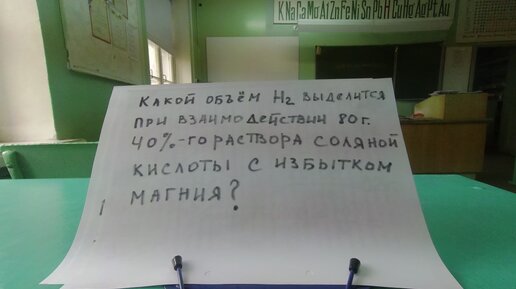 K Na Ca Mg Al Zn Fe Ni Sn Pb H Cu Hg Ag Pt Au
КАКОЙ ОБЪЁМ H₂ ВЫДЕЛИТСЯ
ПРИ ВЗАИМОДЕЙСТВИИ 80 г.
40%-ГО РАСТВОРА СОЛЯНОЙ
КИСЛОТЫ С ИЗБЫТКОМ
МАГНИЯ?